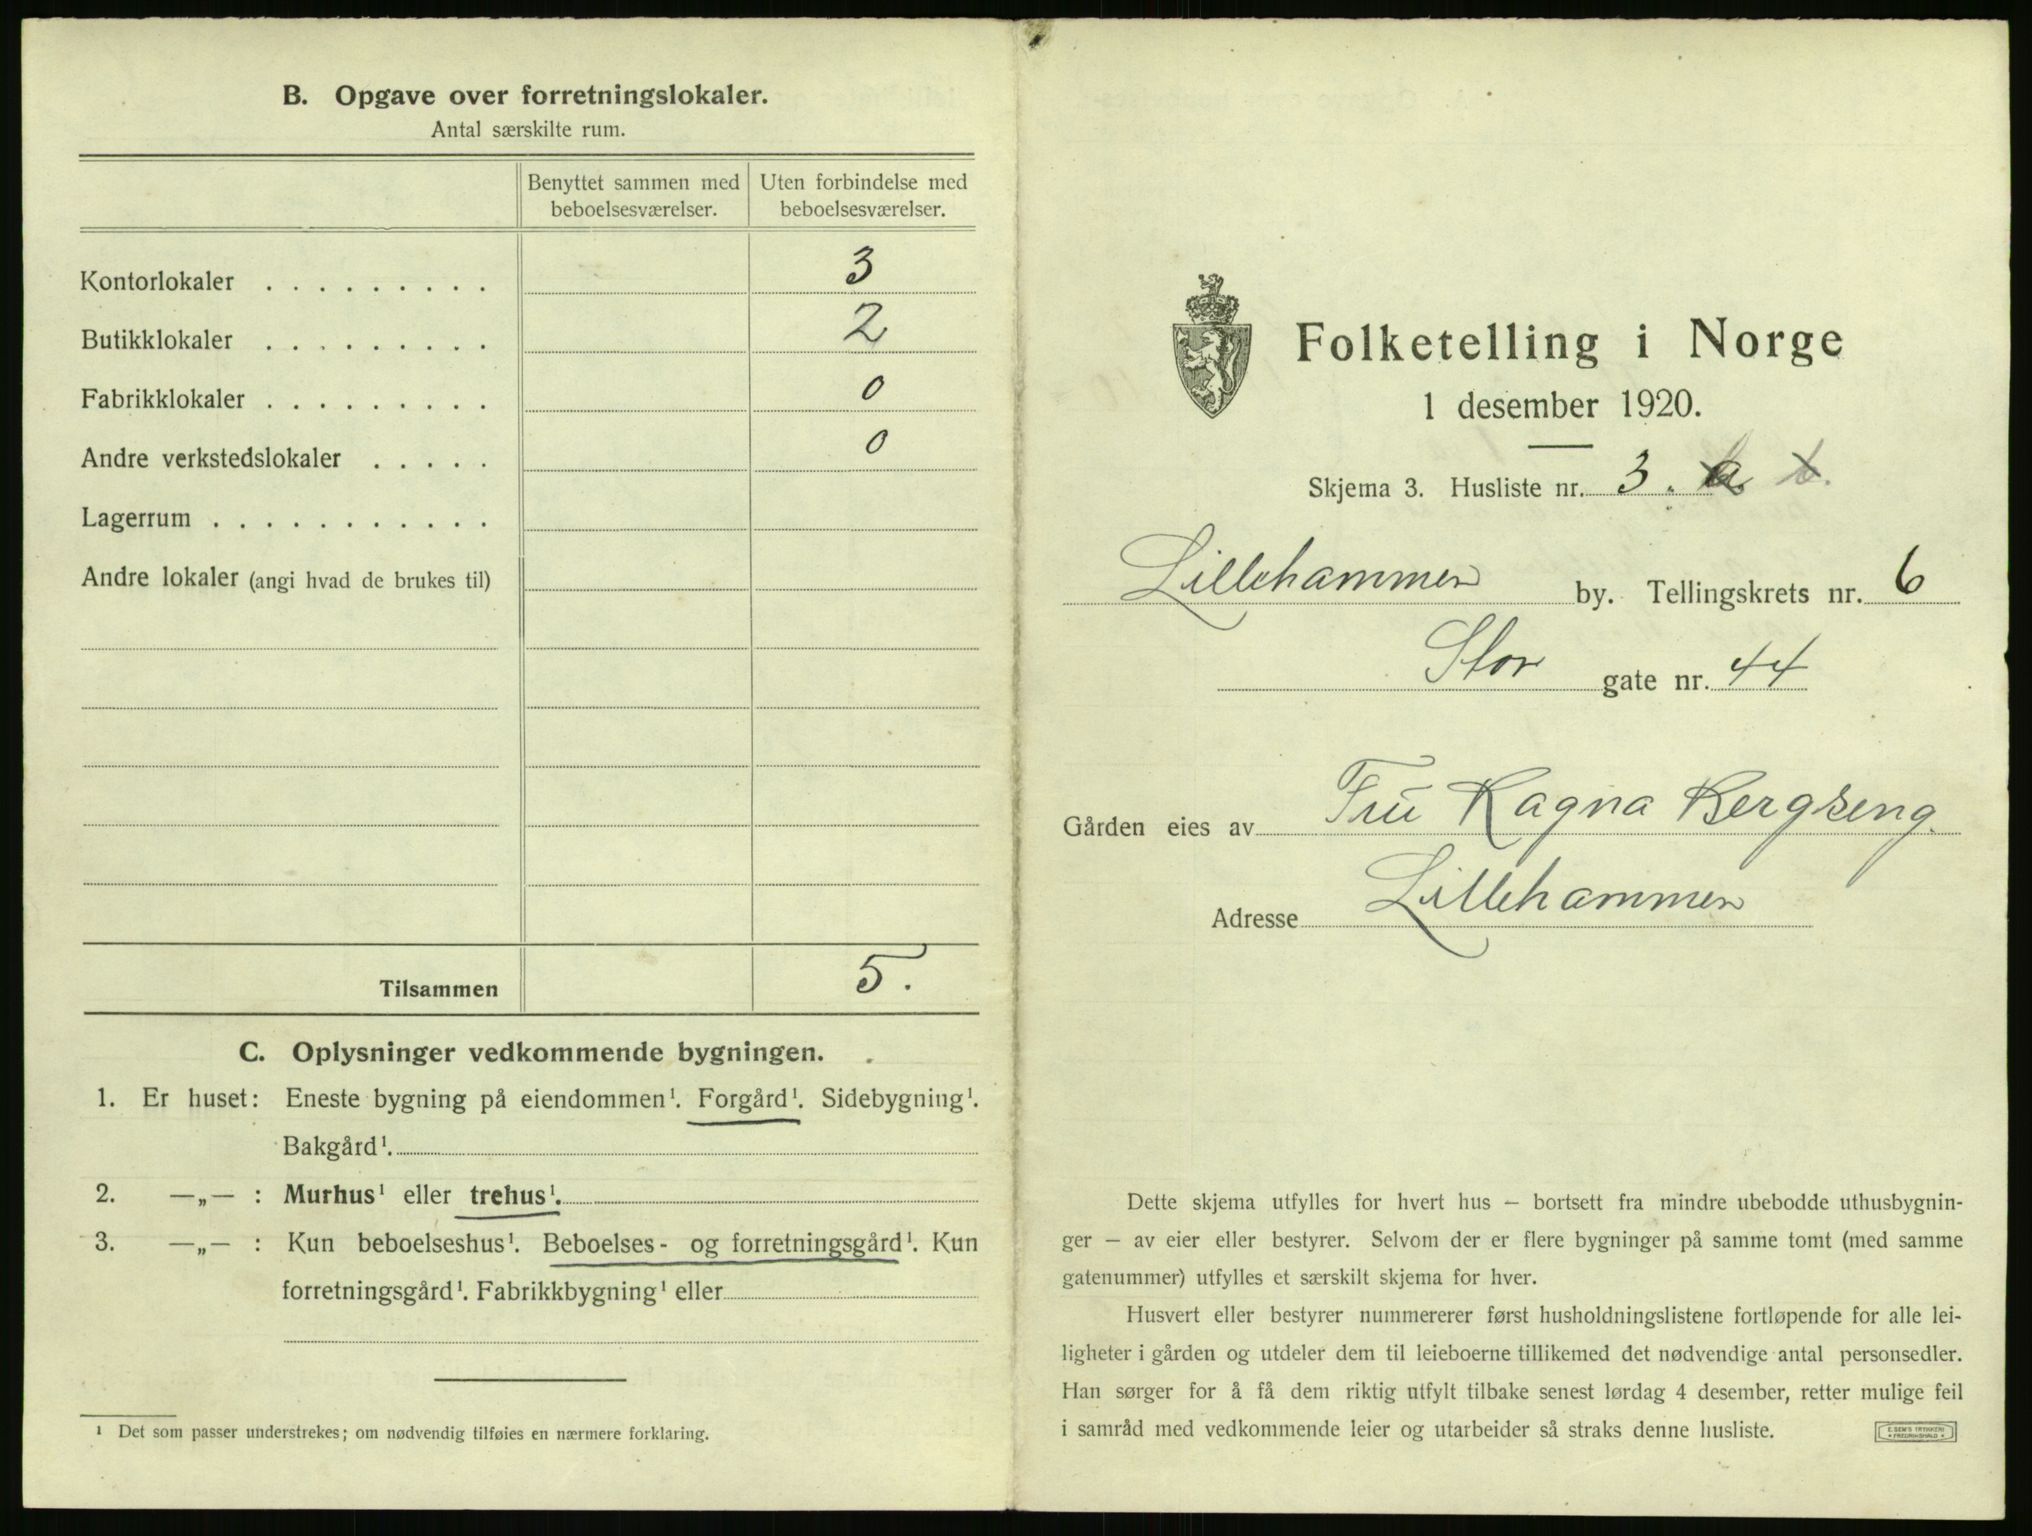 B. Opgave over forretningslokaler.
Antal særskilte rum.
Benyttet sammen med beboelsesværelser.
Uten forbindelse med beboelsesværelser.
Kontorlokaler . . . . . . . . . 3
Butikklokaler . . . . . . . . . 2
Fabrikklokaler . . . . . . . . . 0
Andre verkstedslokaler . . . . . 0
Lagerrum . . . . . . . . . . .
Andre lokaler (angi hvad de brukes til)
Tilsammen 5.
C. Oplysninger vedkommende bygningen.
1. Er huset: Eneste bygning på eiendommen¹. Forgård¹. Sidebygning¹.
Bakgård¹.
2. —„— : Murhus¹ eller trehus¹.
3. —„— : Kun beboelseshus¹. Beboelses- og forretningsgård¹. Kun
forretningsgård¹. Fabrikkbygning¹ eller
¹ Det som passer understrekes; om nødvendig tilføies en nærmere forklaring.
Folketelling i Norge
1 desember 1920.
Skjema 3. Husliste nr. 3.
Lillehammer by. Tellingskrets nr. 6
Stor gate nr. 44
Gården eies av Fru Ragna Bergseng.
Adresse Lillehammer
Dette skjema utfylles for hvert hus – bortsett fra mindre ubebodde uthusbygnin-
ger – av eier eller bestyrer. Selvom der er flere bygninger på samme tomt (med samme
gatenummer) utfylles et særskilt skjema for hver.
Husvert eller bestyrer nummererer først husholdningslistene fortløpende for alle lei-
ligheter i gården og utdeler dem til leieboerne tillikemed det nødvendige antal personsedler.
Han sørger for å få dem riktig utfylt tilbake senest lørdag 4 desember, retter mulige feil
i samråd med vedkommende leier og utarbeider så straks denne husliste.
E. SEM'S TRYKKERI
FREDRIKSHALD